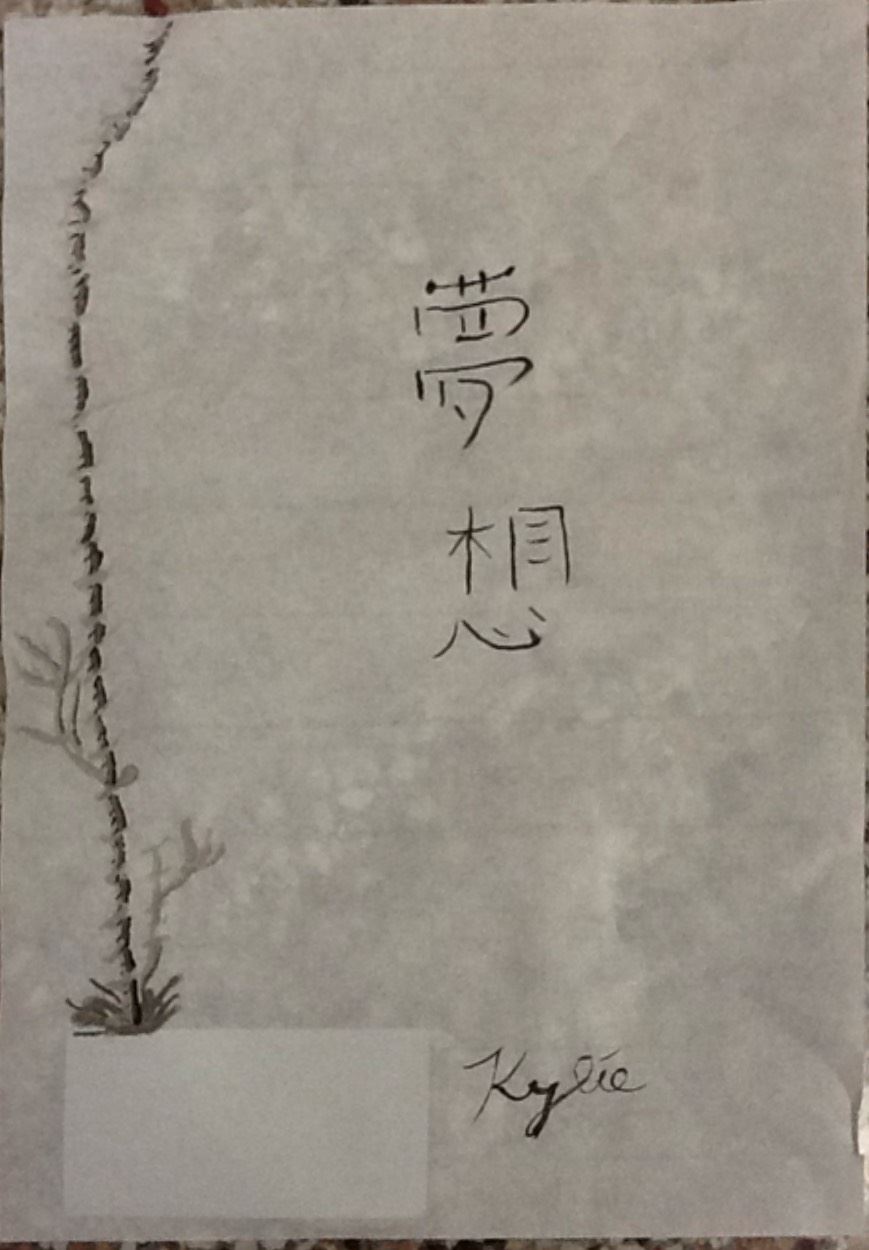 夢想
Kylie